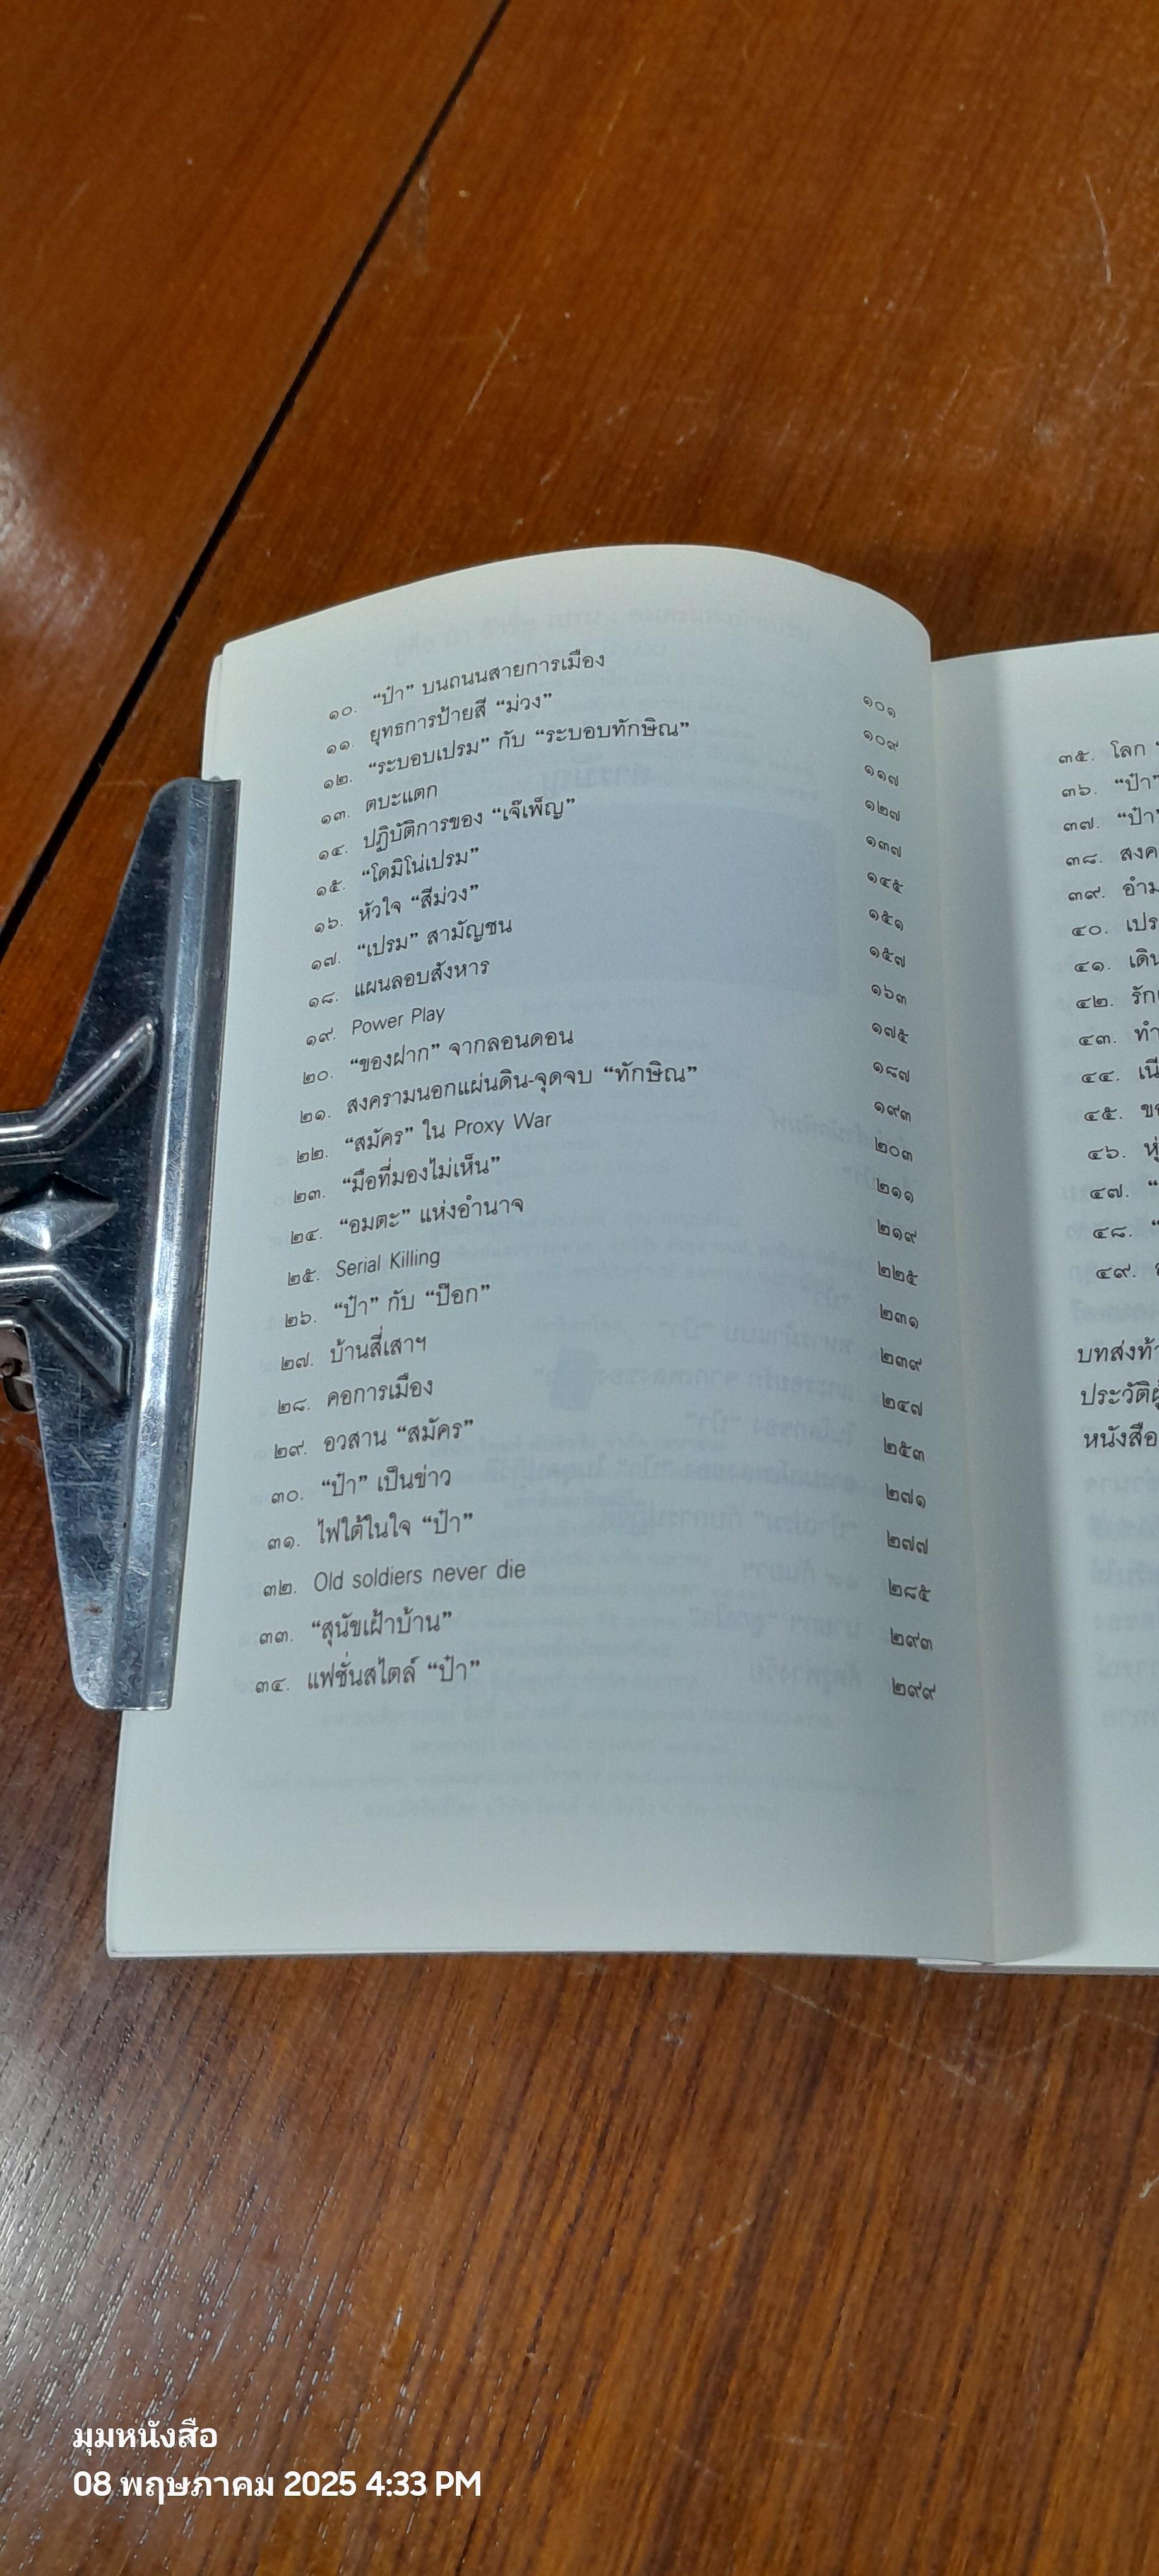 ๑๐. “ป๋า” บนถนนสายการเมือง ๑๐๑
๑๑. ยุทธการป้ายสี “ม่วง” ๑๐๙
๑๒. “ระบอบเปรม” กับ “ระบอบทักษิณ” ๑๑๗
๑๓. ตบะแตก ๑๒๗
๑๔. ปฏิบัติการของ “เจ๊เพ็ญ” ๑๓๗
๑๕. “โดมิโน่เปรม” ๑๔๕
๑๖. หัวใจ “สีม่วง” ๑๕๑
๑๗. “เปรม” สามัญชน ๑๕๗
๑๘. แผนลอบสังหาร ๑๖๓
๑๙. Power Play ๑๗๕
๒๐. “ของฝาก” จากลอนดอน ๑๘๗
๒๑. สงครามนอกแผ่นดิน-จุดจบ “ทักษิณ” ๑๙๓
๒๒. “สมัคร” ใน Proxy War ๒๐๓
๒๓. “มือที่มองไม่เห็น” ๒๑๑
๒๔. “อมตะ” แห่งอำนาจ ๒๑๙
๒๕. Serial Killing ๒๒๕
๒๖. “ป๋า” กับ “ป๊อก” ๒๓๑
๒๗. บ้านสี่เสาฯ ๒๓๙
๒๘. คอการเมือง ๒๔๗
๒๙. อวสาน “สมัคร” ๒๕๓
๓๐. “ป๋า” เป็นข่าว ๒๗๑
๓๑. ไฟใต้ในใจ “ป๋า” ๒๗๗
๓๒. Old soldiers never die ๒๘๕
๓๓. “สุนัขเฝ้าบ้าน” ๒๙๓
๓๔. แฟชั่นสไตล์ “ป๋า” ๒๙๙
๓๕. โลก
๓๖. “ป๋า”
๓๗. “ป๋า”
๓๘.
๓๙.
๔๐.
๔๑.
๔๒.
๔๓.
๔๔.
๔๕.
๔๖.
๔๗.
๔๘.
๔๙.
บทส่งท้า
ประวัติผู้
หนังสือ
มุมหนังสือ
08 พฤษภาคม 2025 4:33 PM